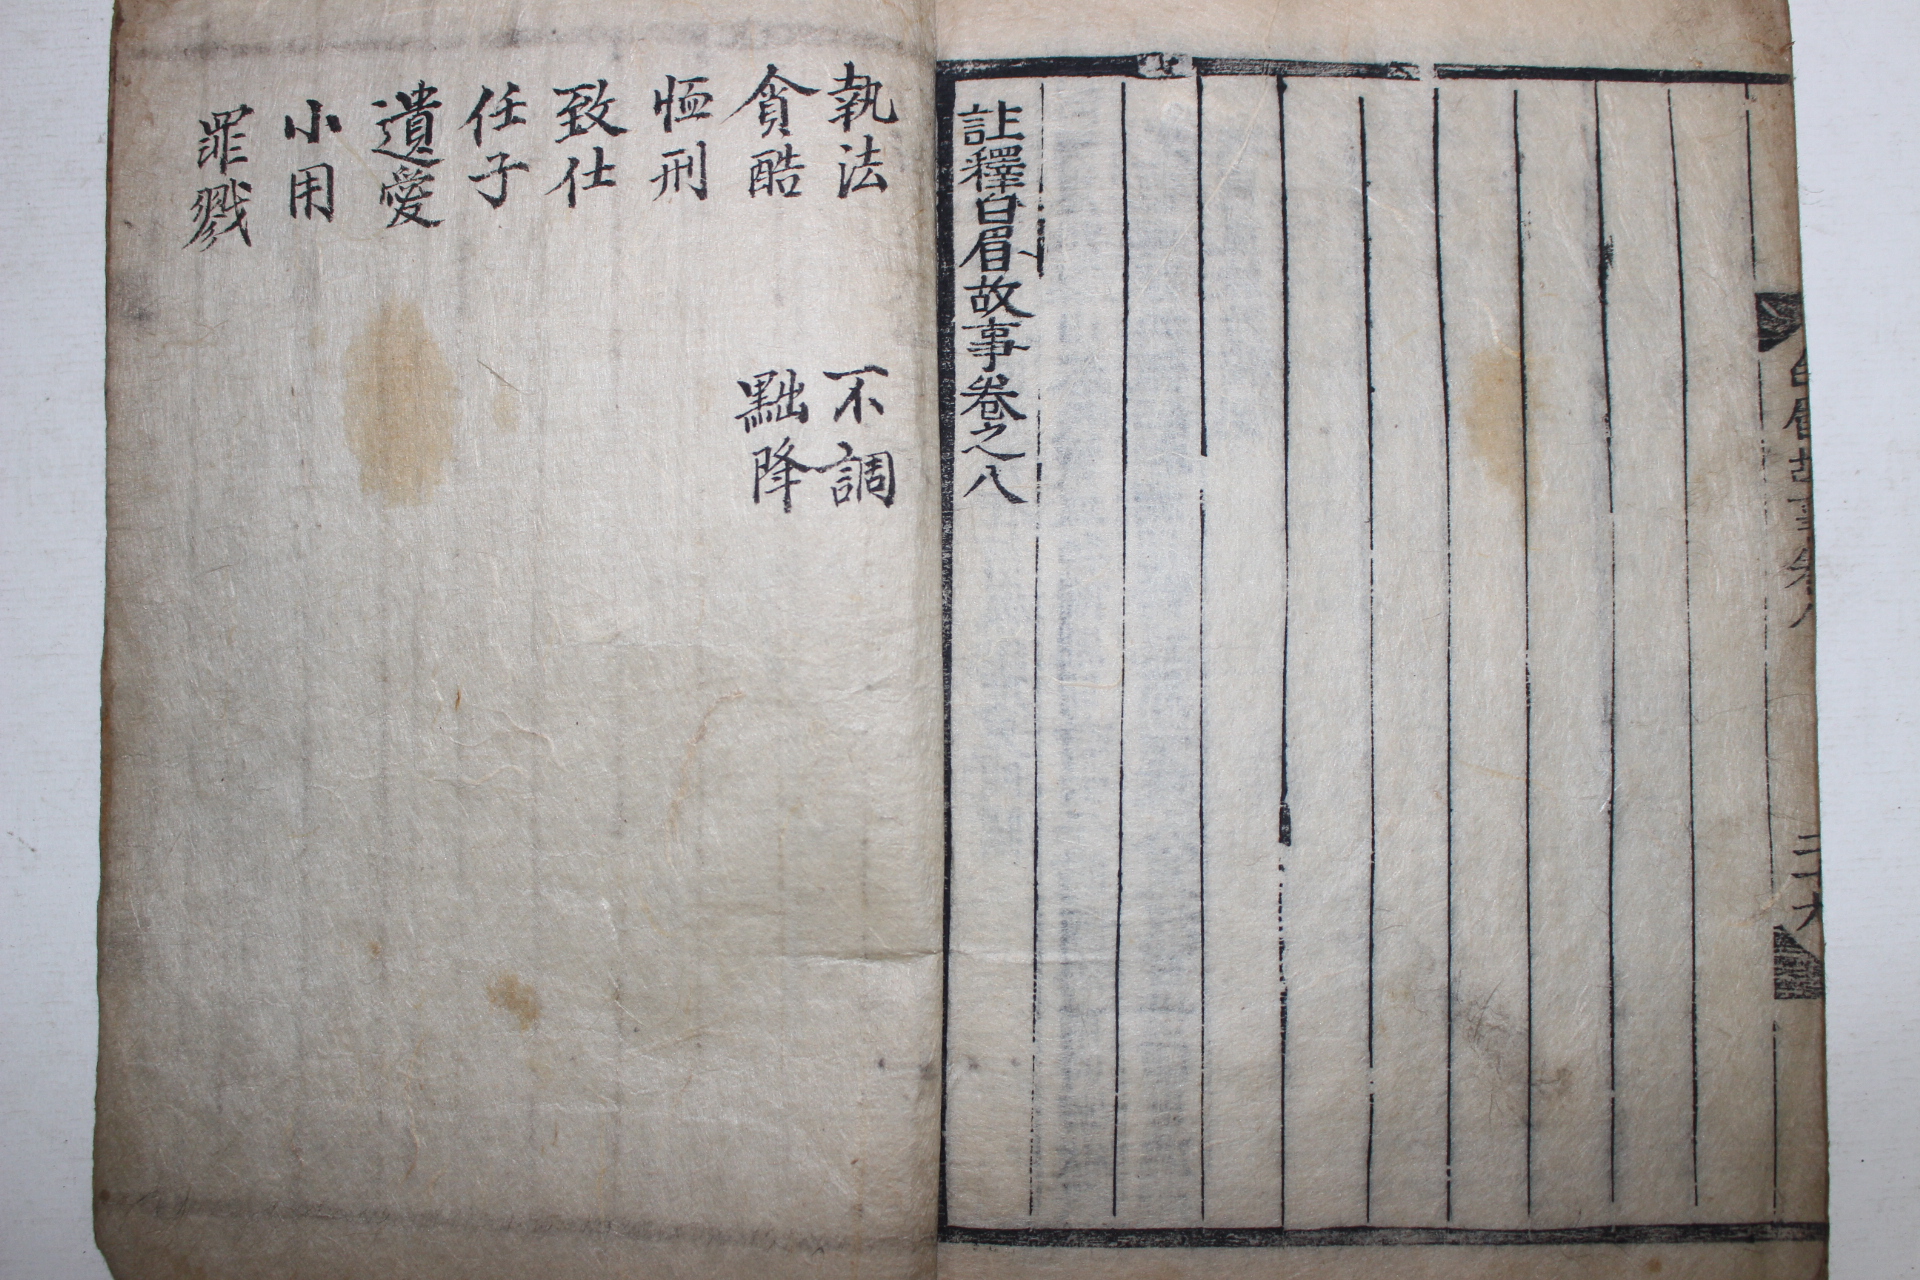 白眉故事卷八
三十九
註釋白眉故事卷之八
執法
貪酷
恤刑
致仕
任子
遺愛
小用
罪戮
不調
黜降